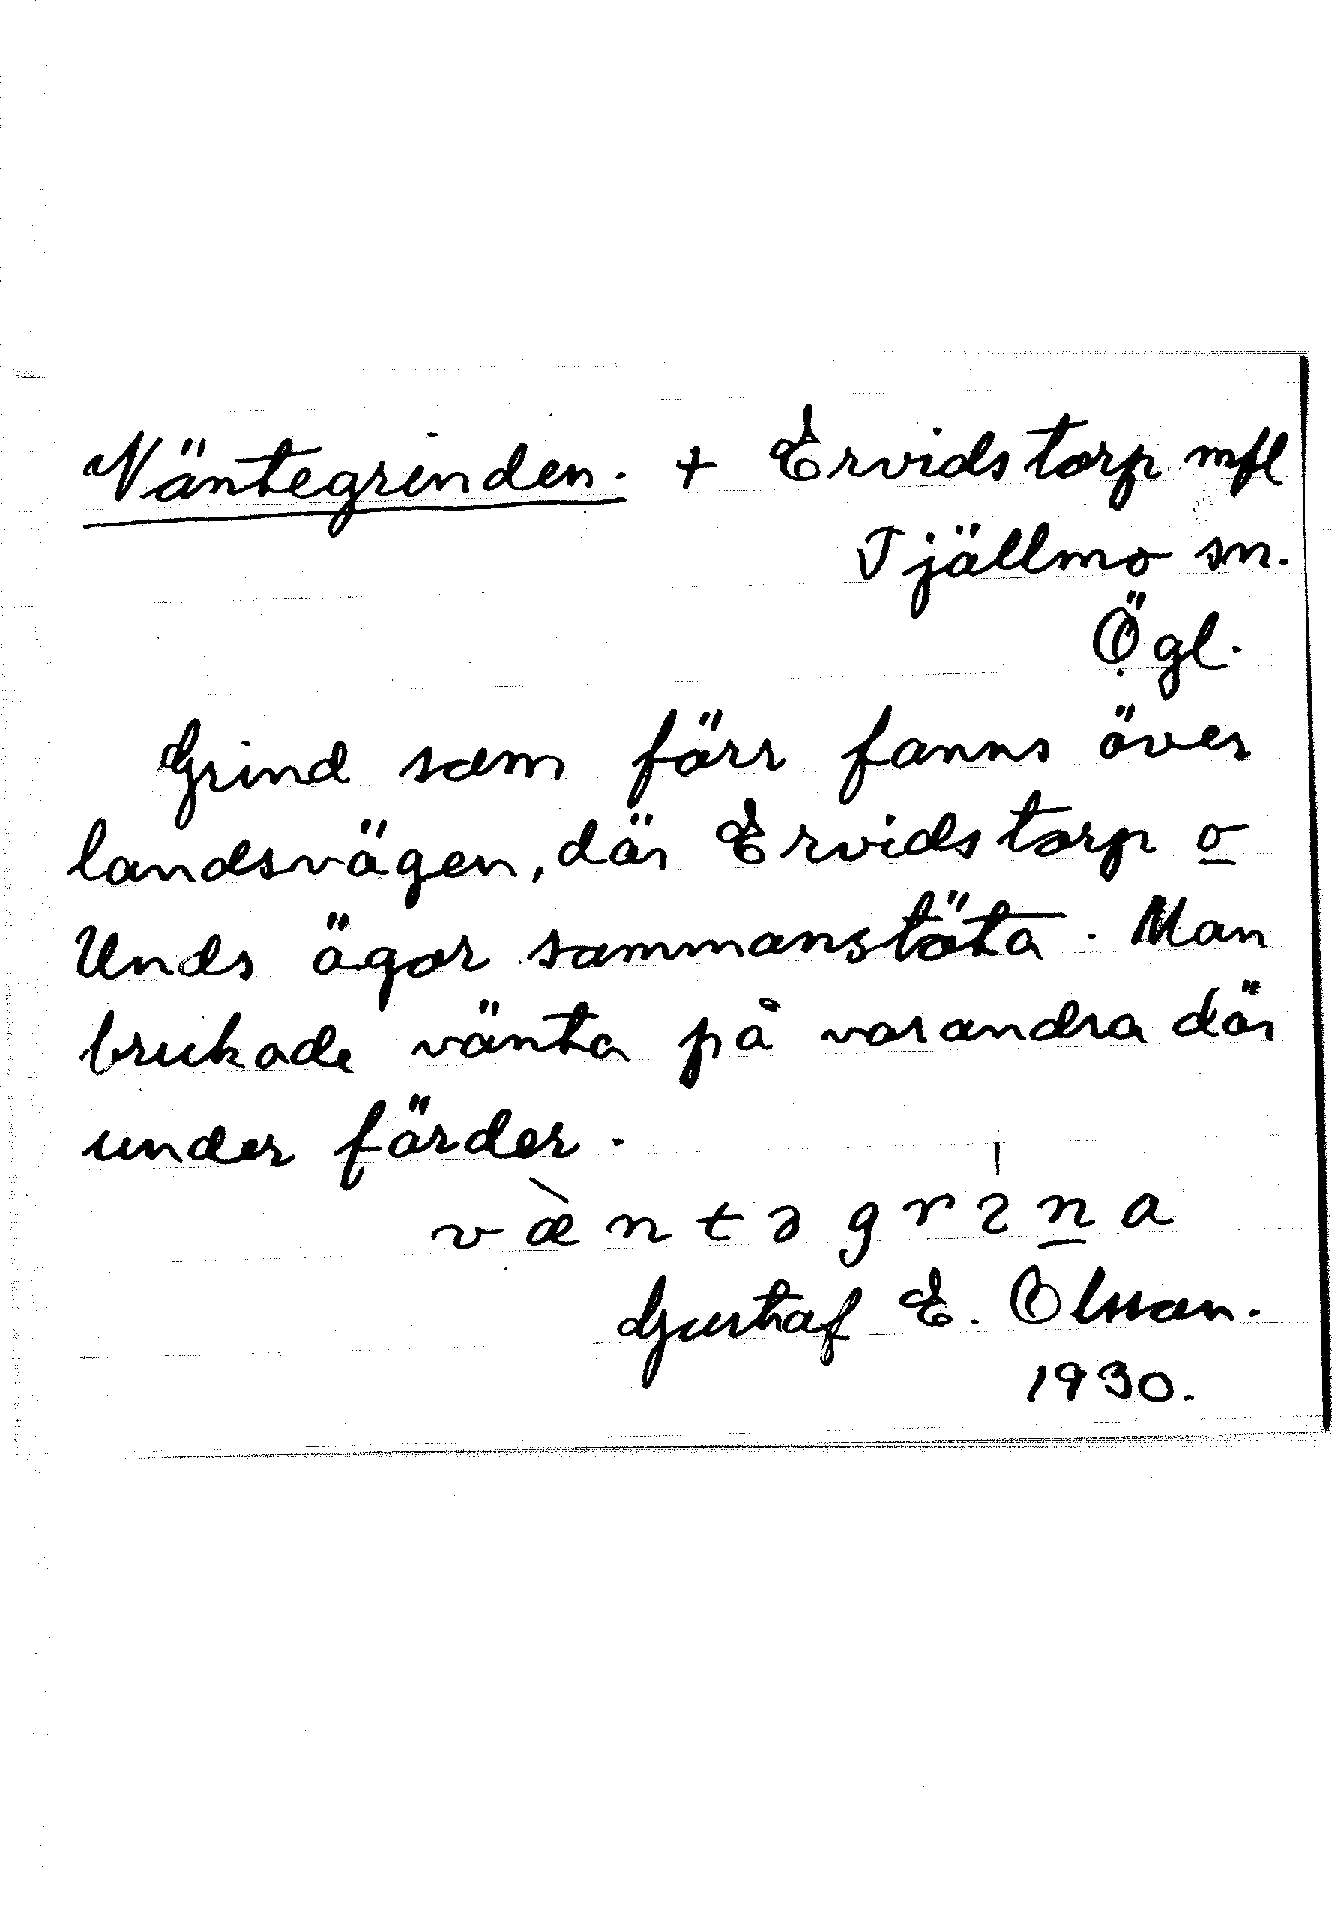 Väntegrinden. + Ervidstorp mfl
Tjällmo sn.
Ögl.
Grind som förr fanns över
landsvägen, där Ervidstorp o
Unds ägor sammanstöta. Man
brukade vänta på varandra där
under färder.
væ̀ntəgrɩ̍n̲a
Gustaf E. Olsson.
1930.